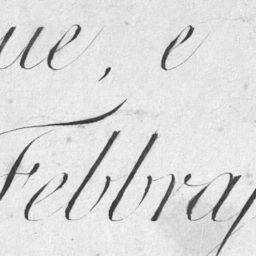 ue, e
Febbraj